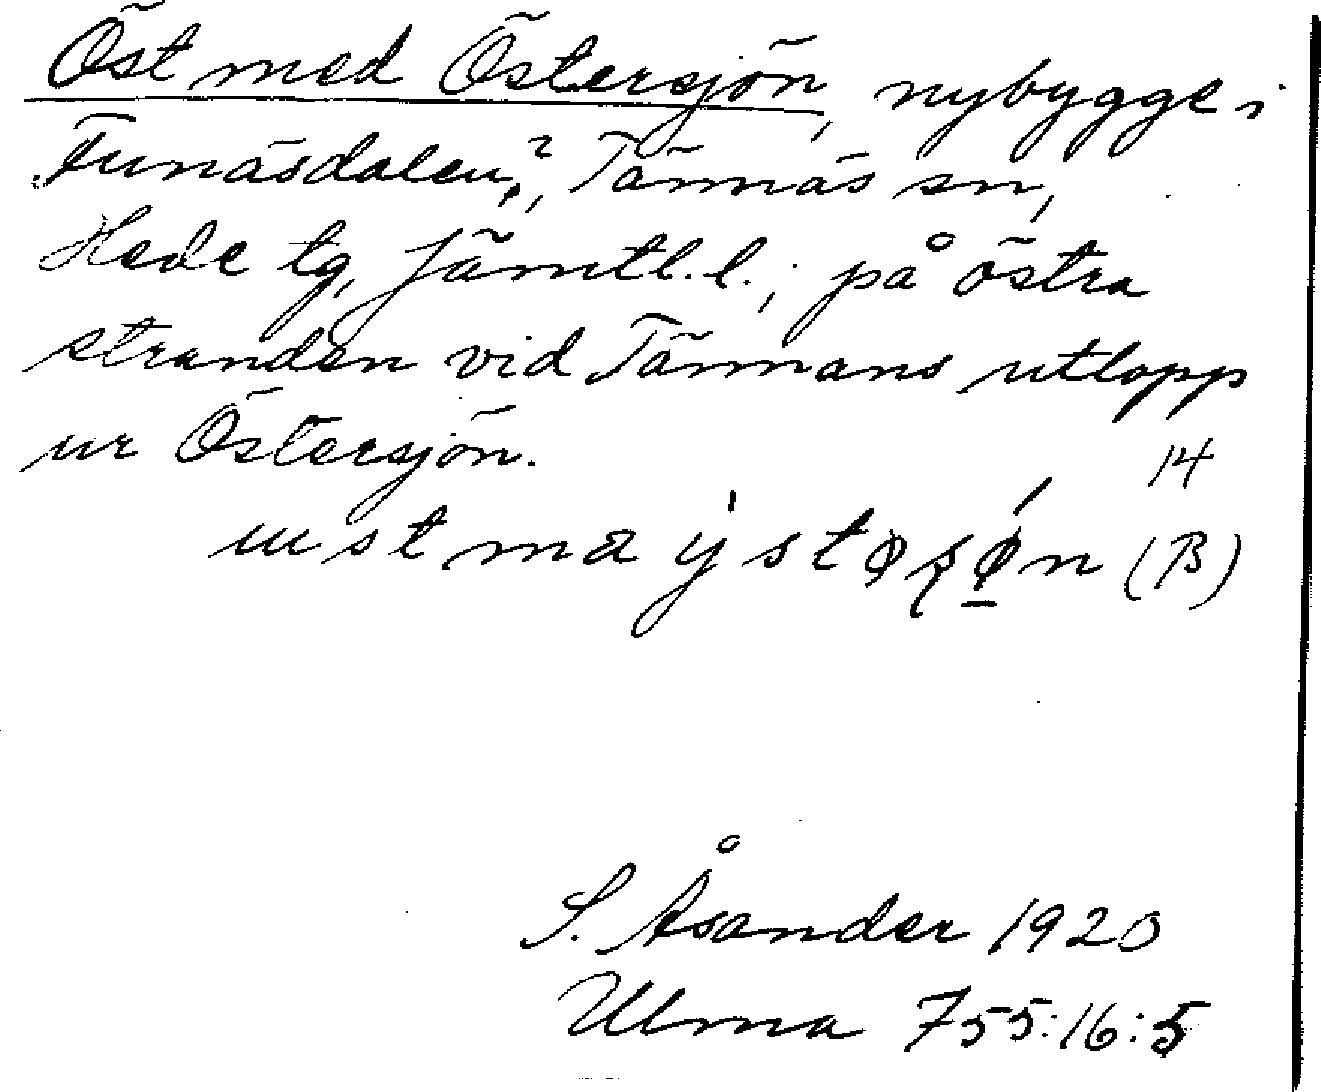 Öst med Östersjön, nybygge i
Funäsdalen?, Tännäs sn,
Hede tg, Jämtl. l.; på östra
stranden vid Tännans utlopp
ur Östersjön.
14
(B)
S. Åsander 1920
Ulma 755:16:5